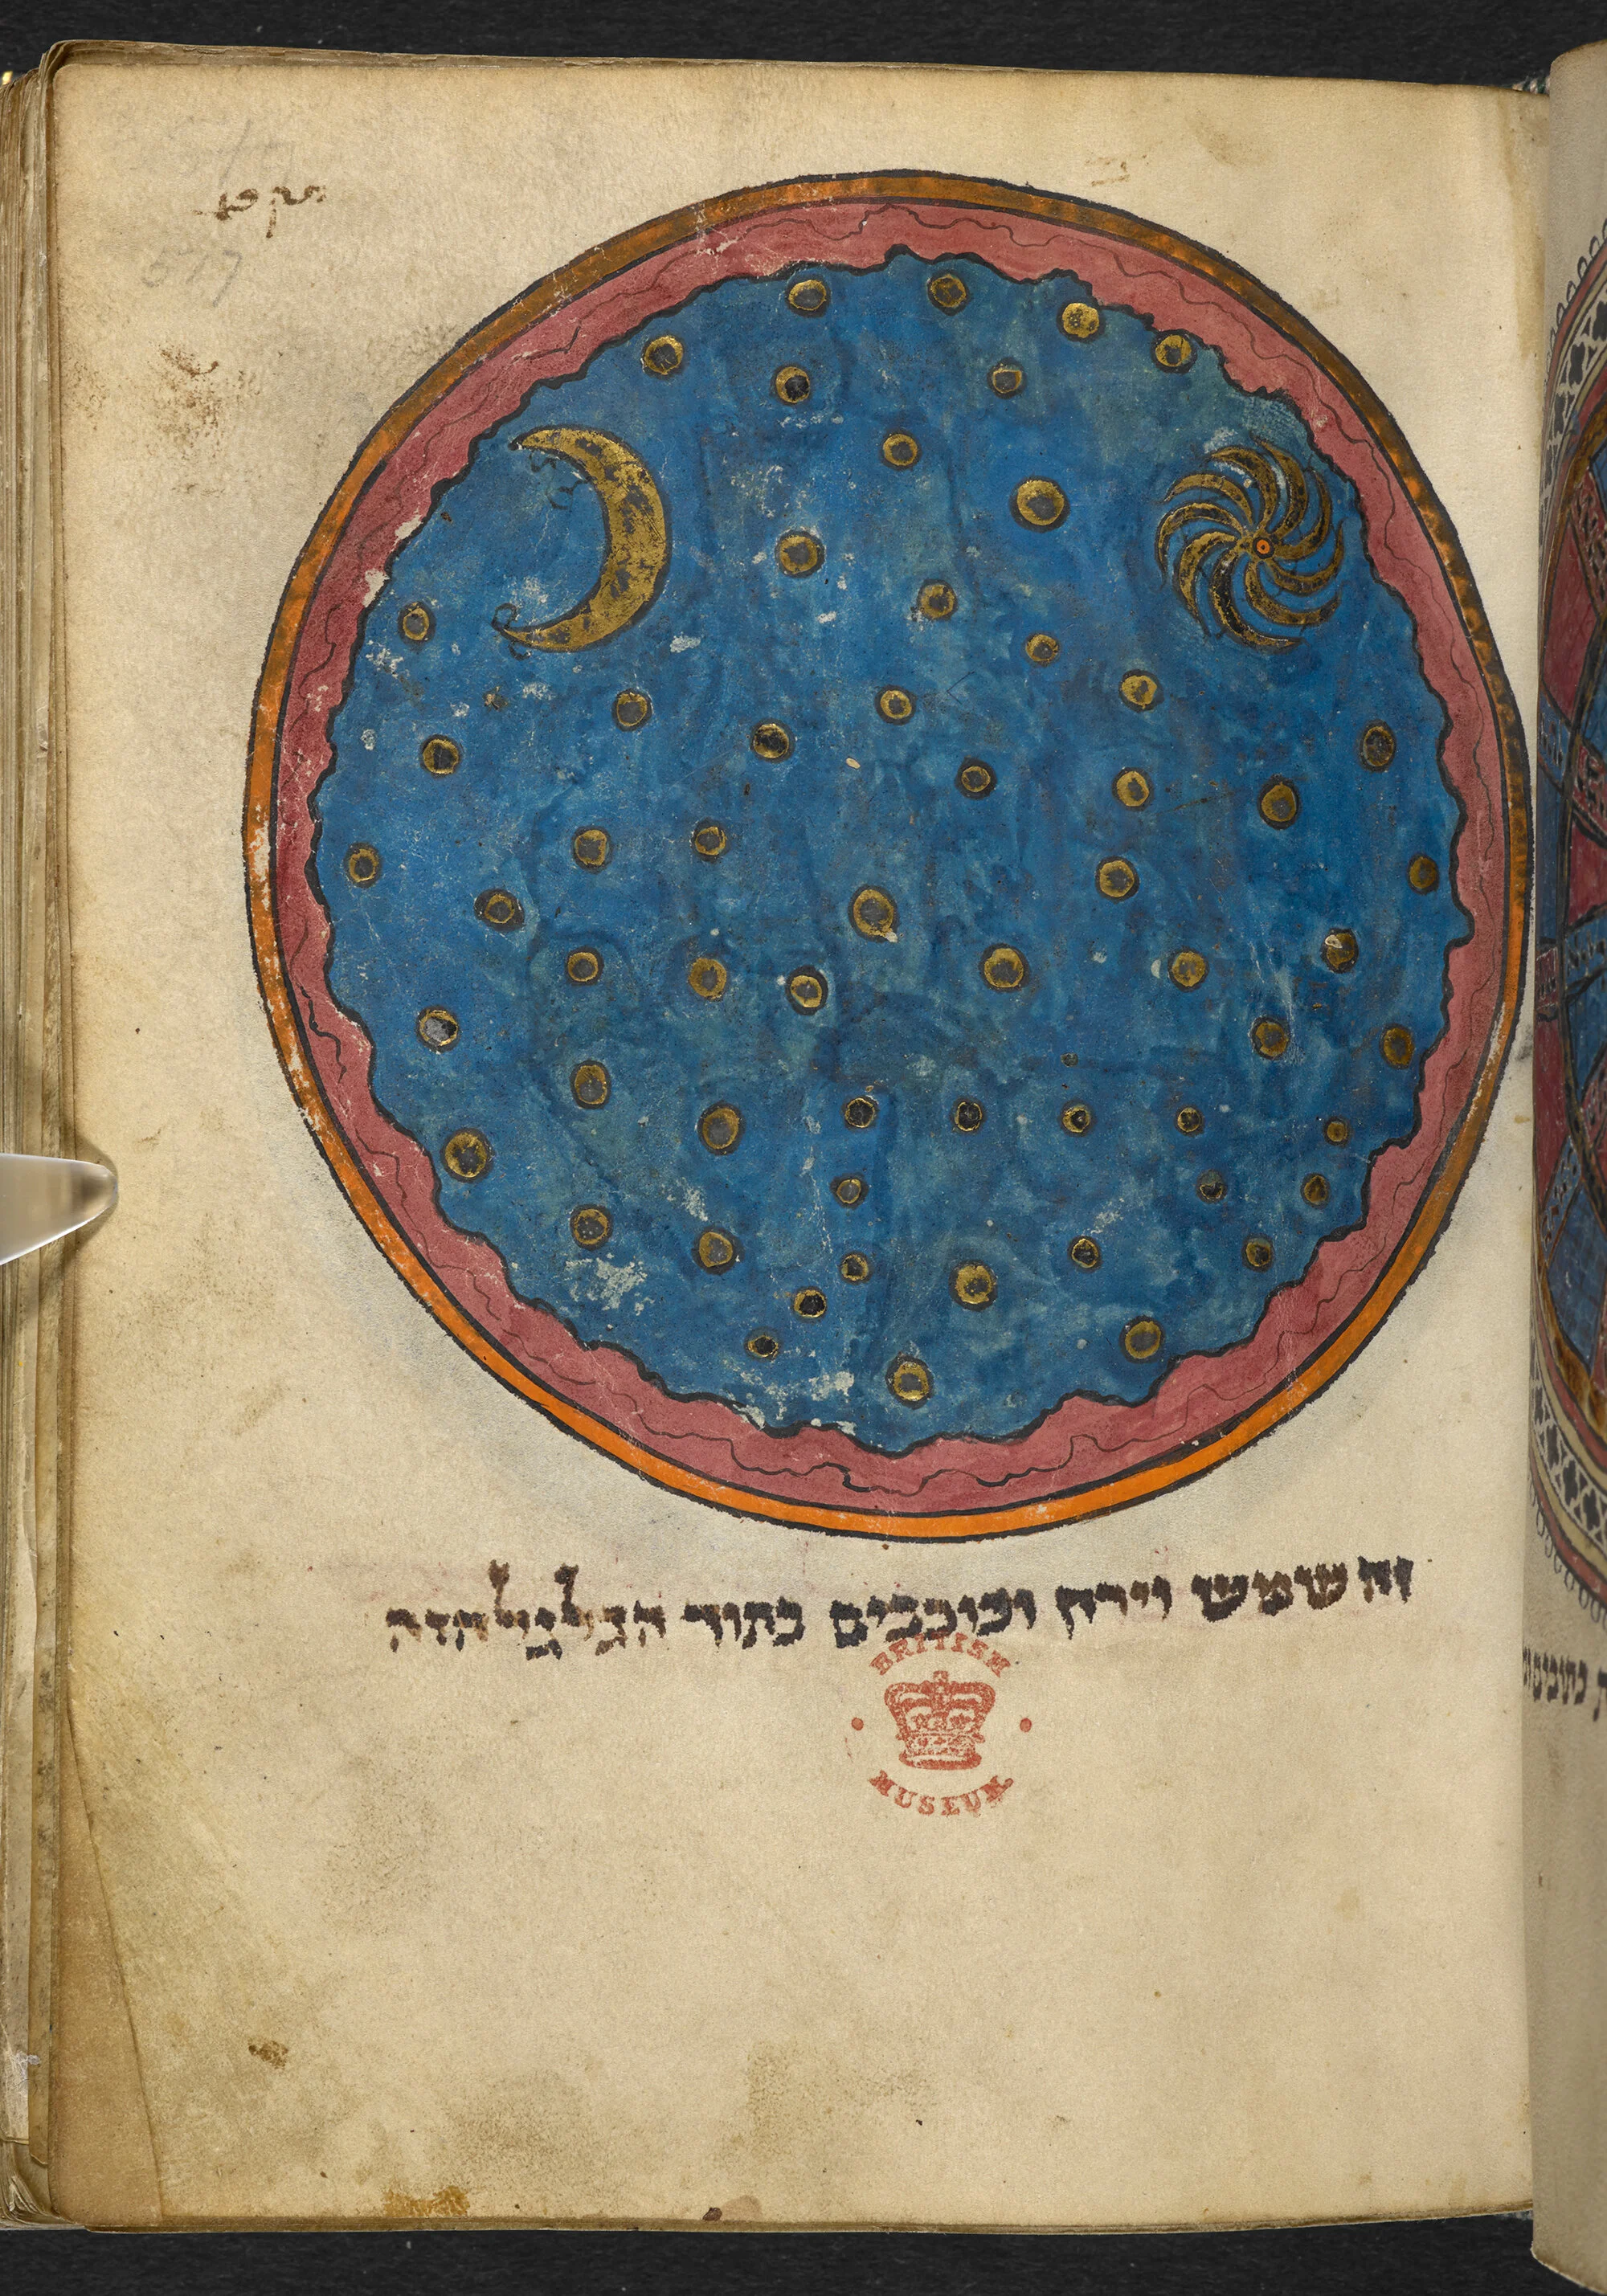 577
זה שמש וירח וכוכבים בתוך הגלגל הזה
BRITISH
MUSEUM